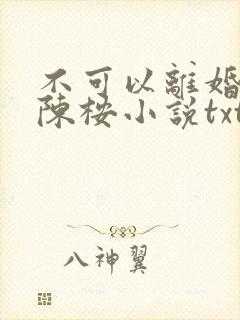 不可以離婚
陳桉小說txt
八神翼